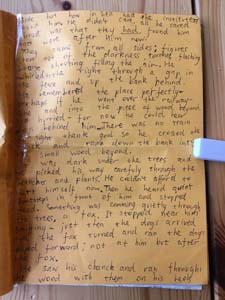 but how in hell had the
him. He didn't care, all he cared
was that they had found him
were after him now.
came from all sides; figures
out of the darkness turned flashing
filling the air. He
right through a gap in
fence up the bank behind.
remembered the place perfectly
perhaps if he went over the railway
the piece of wood beyond
hurried for now he could hear
behind him. There was no train
sight thank god so he crossed the
and ran down the bank into
small wood beyond.
was dark under the trees and
picked his way carefully through the
and plants. He couldn't afford to
himself now. Then he heard quiet
footsteps in front of him and stopped
dead. Something was coming quietly through
trees, a fox. It stopped near him
just then the dogs arrived
the fox turned and ran the dogs
leaped forward; not at him but after
the fox.
He saw his chance and ran through
the wood with them on his heels